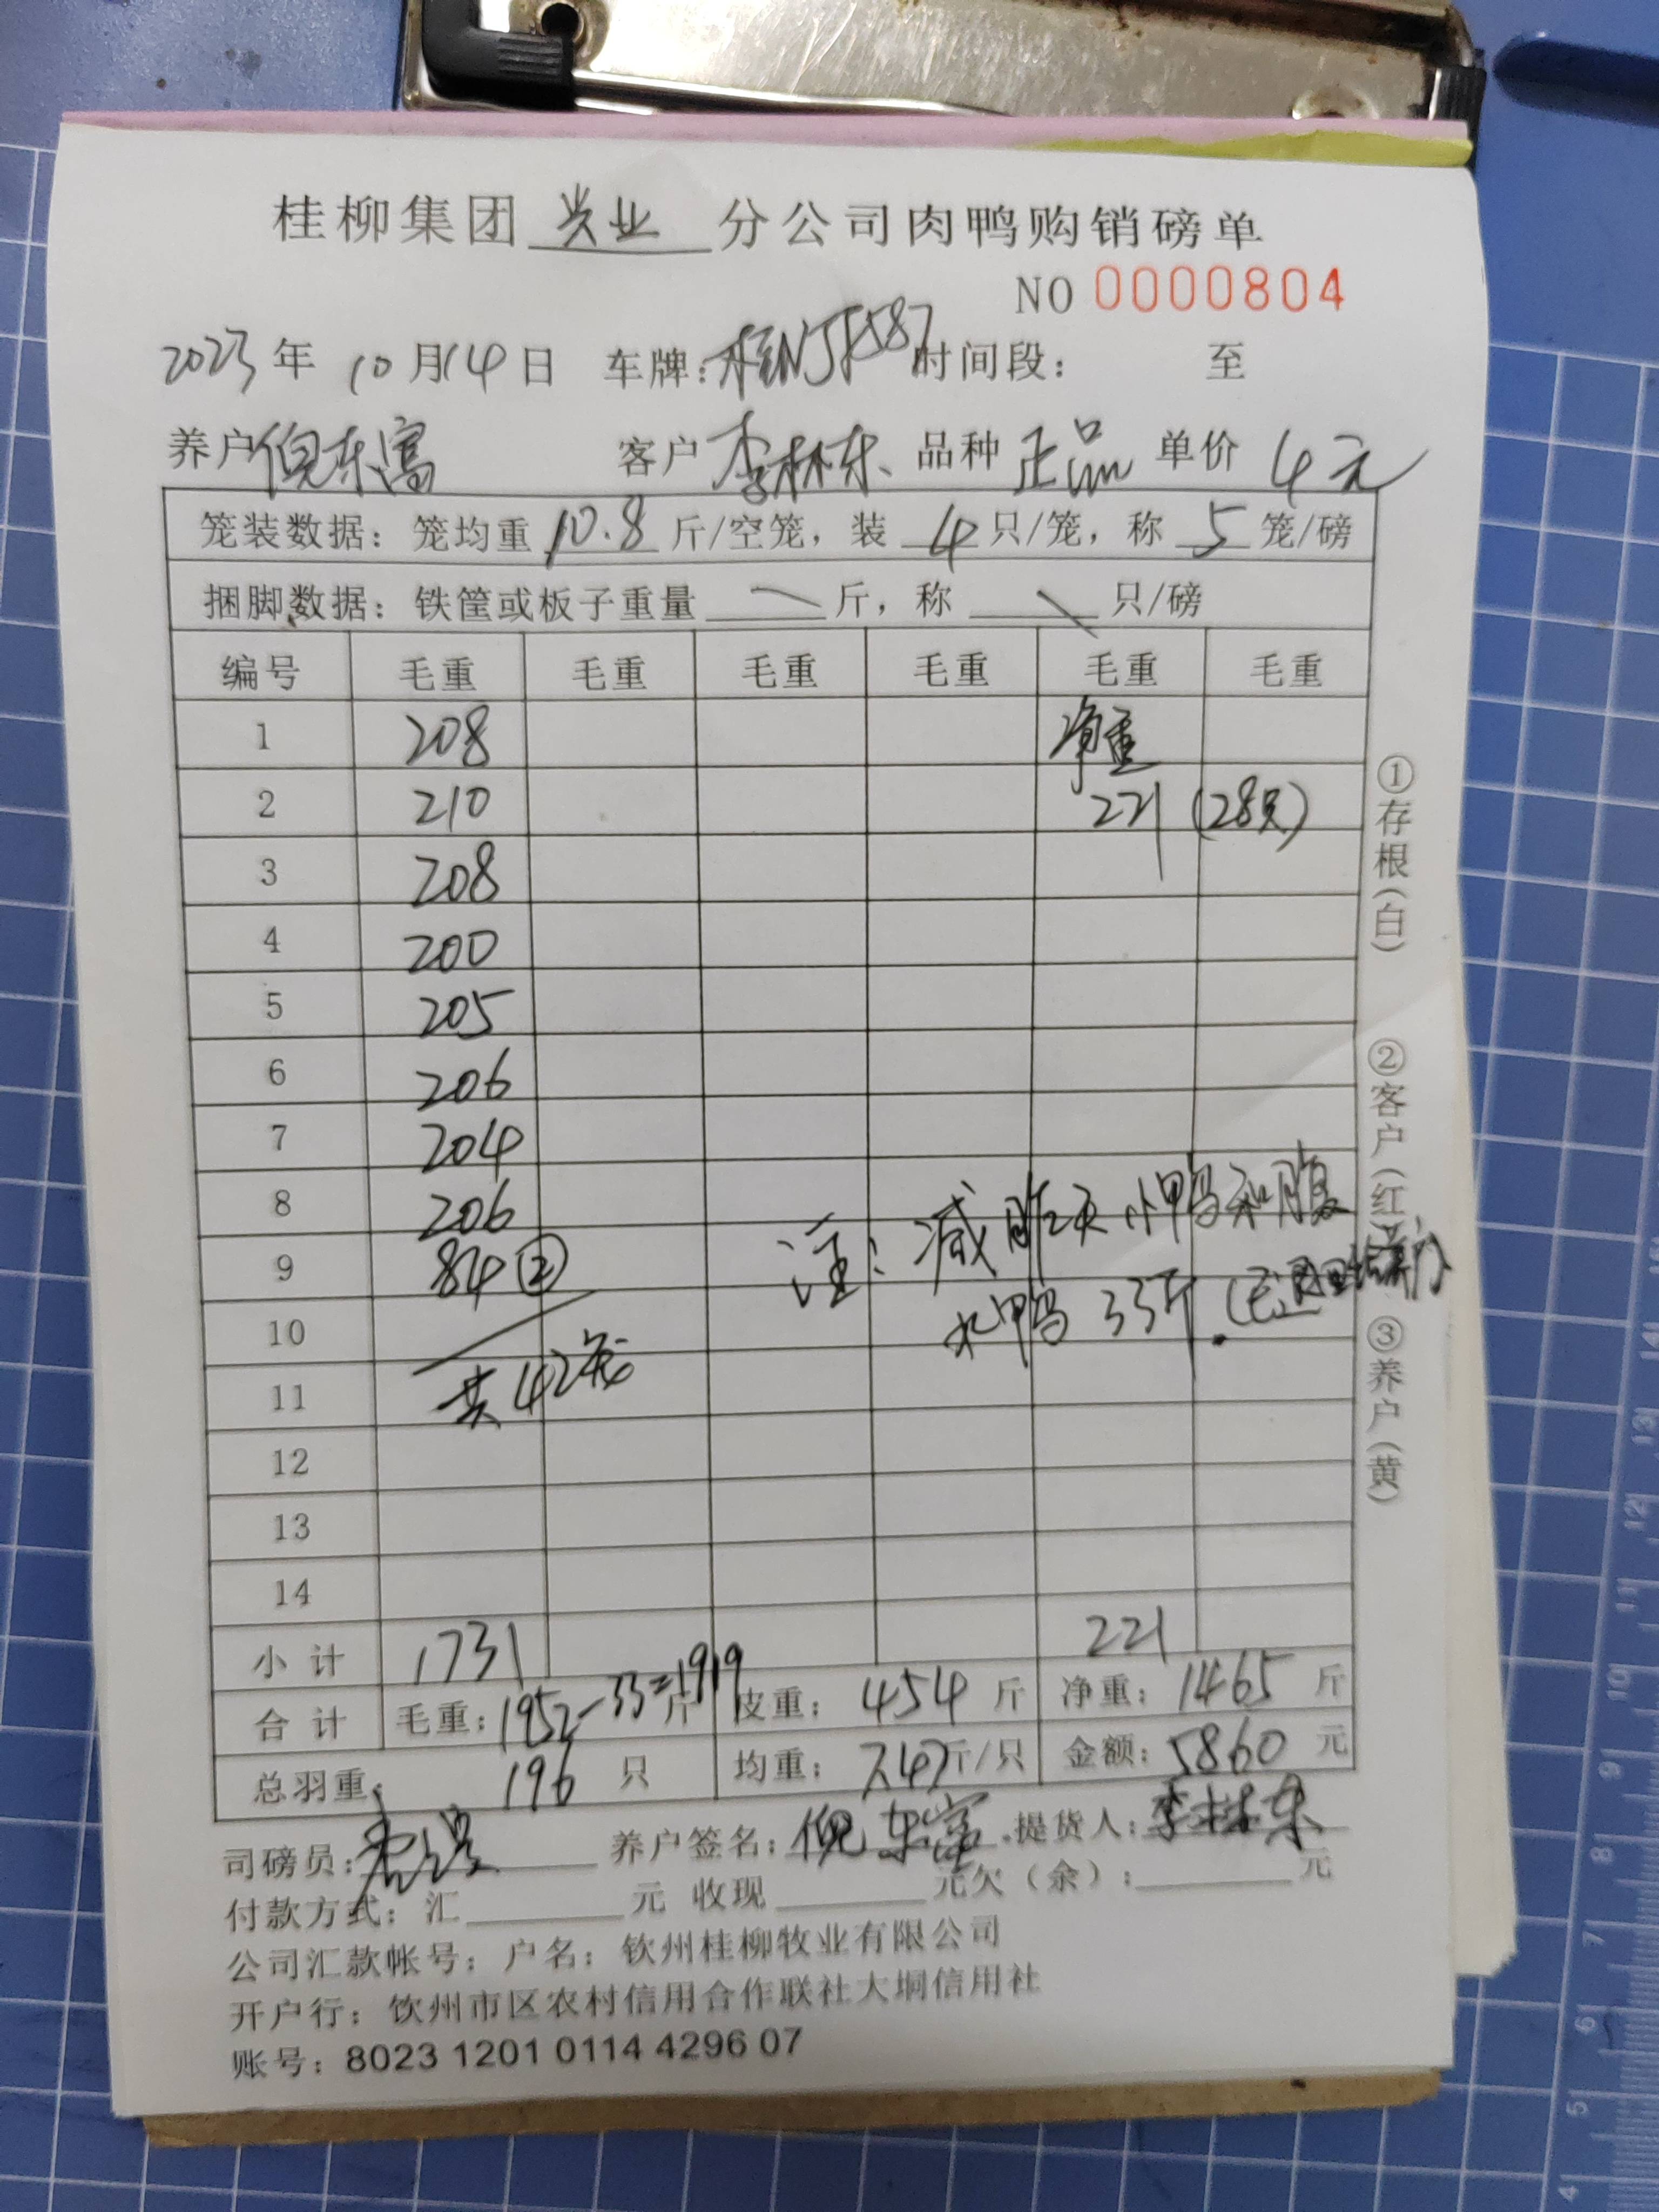 桂柳集团 兴业 分公司肉鸭购销磅单
NO 0000804
2023年 10月14日 车牌:桂NJF587 时间段: 至
养户 倪东富 客户 李林东 品种 正品 单价 4元
笼装数据:笼均重 10.8 斤/空笼,装 4 只/笼,称 5 笼/磅
捆脚数据:铁筐或板子重量 斤,称 只/磅
编号 毛重 毛重 毛重 毛重 毛重 毛重
1 208 净重
2 210 221 (28只)
3 208
4 200
5 205
6 206
7 204
8 206 注:减昨天小鸭和腹
9 84② 水鸭 33斤.
10
11 共42笼
12
13
14
小计 1731 221
合计 毛重:1952-33=1919 斤 皮重: 454 斤 净重: 1465 斤
总羽重: 196 只 均重: 7.47 斤/只 金额: 5860 元
司磅员: 养户签名: 倪东富 提货人: 李林东
付款方式:汇 元 收现 元欠(余): 元
公司汇款帐号:户名:钦州桂柳牧业有限公司
开户行:钦州市区农村信用合作联社大垌信用社
账号:8023 1201 0114 4296 07
①存根(白) ②客户(红) ③养户(黄)